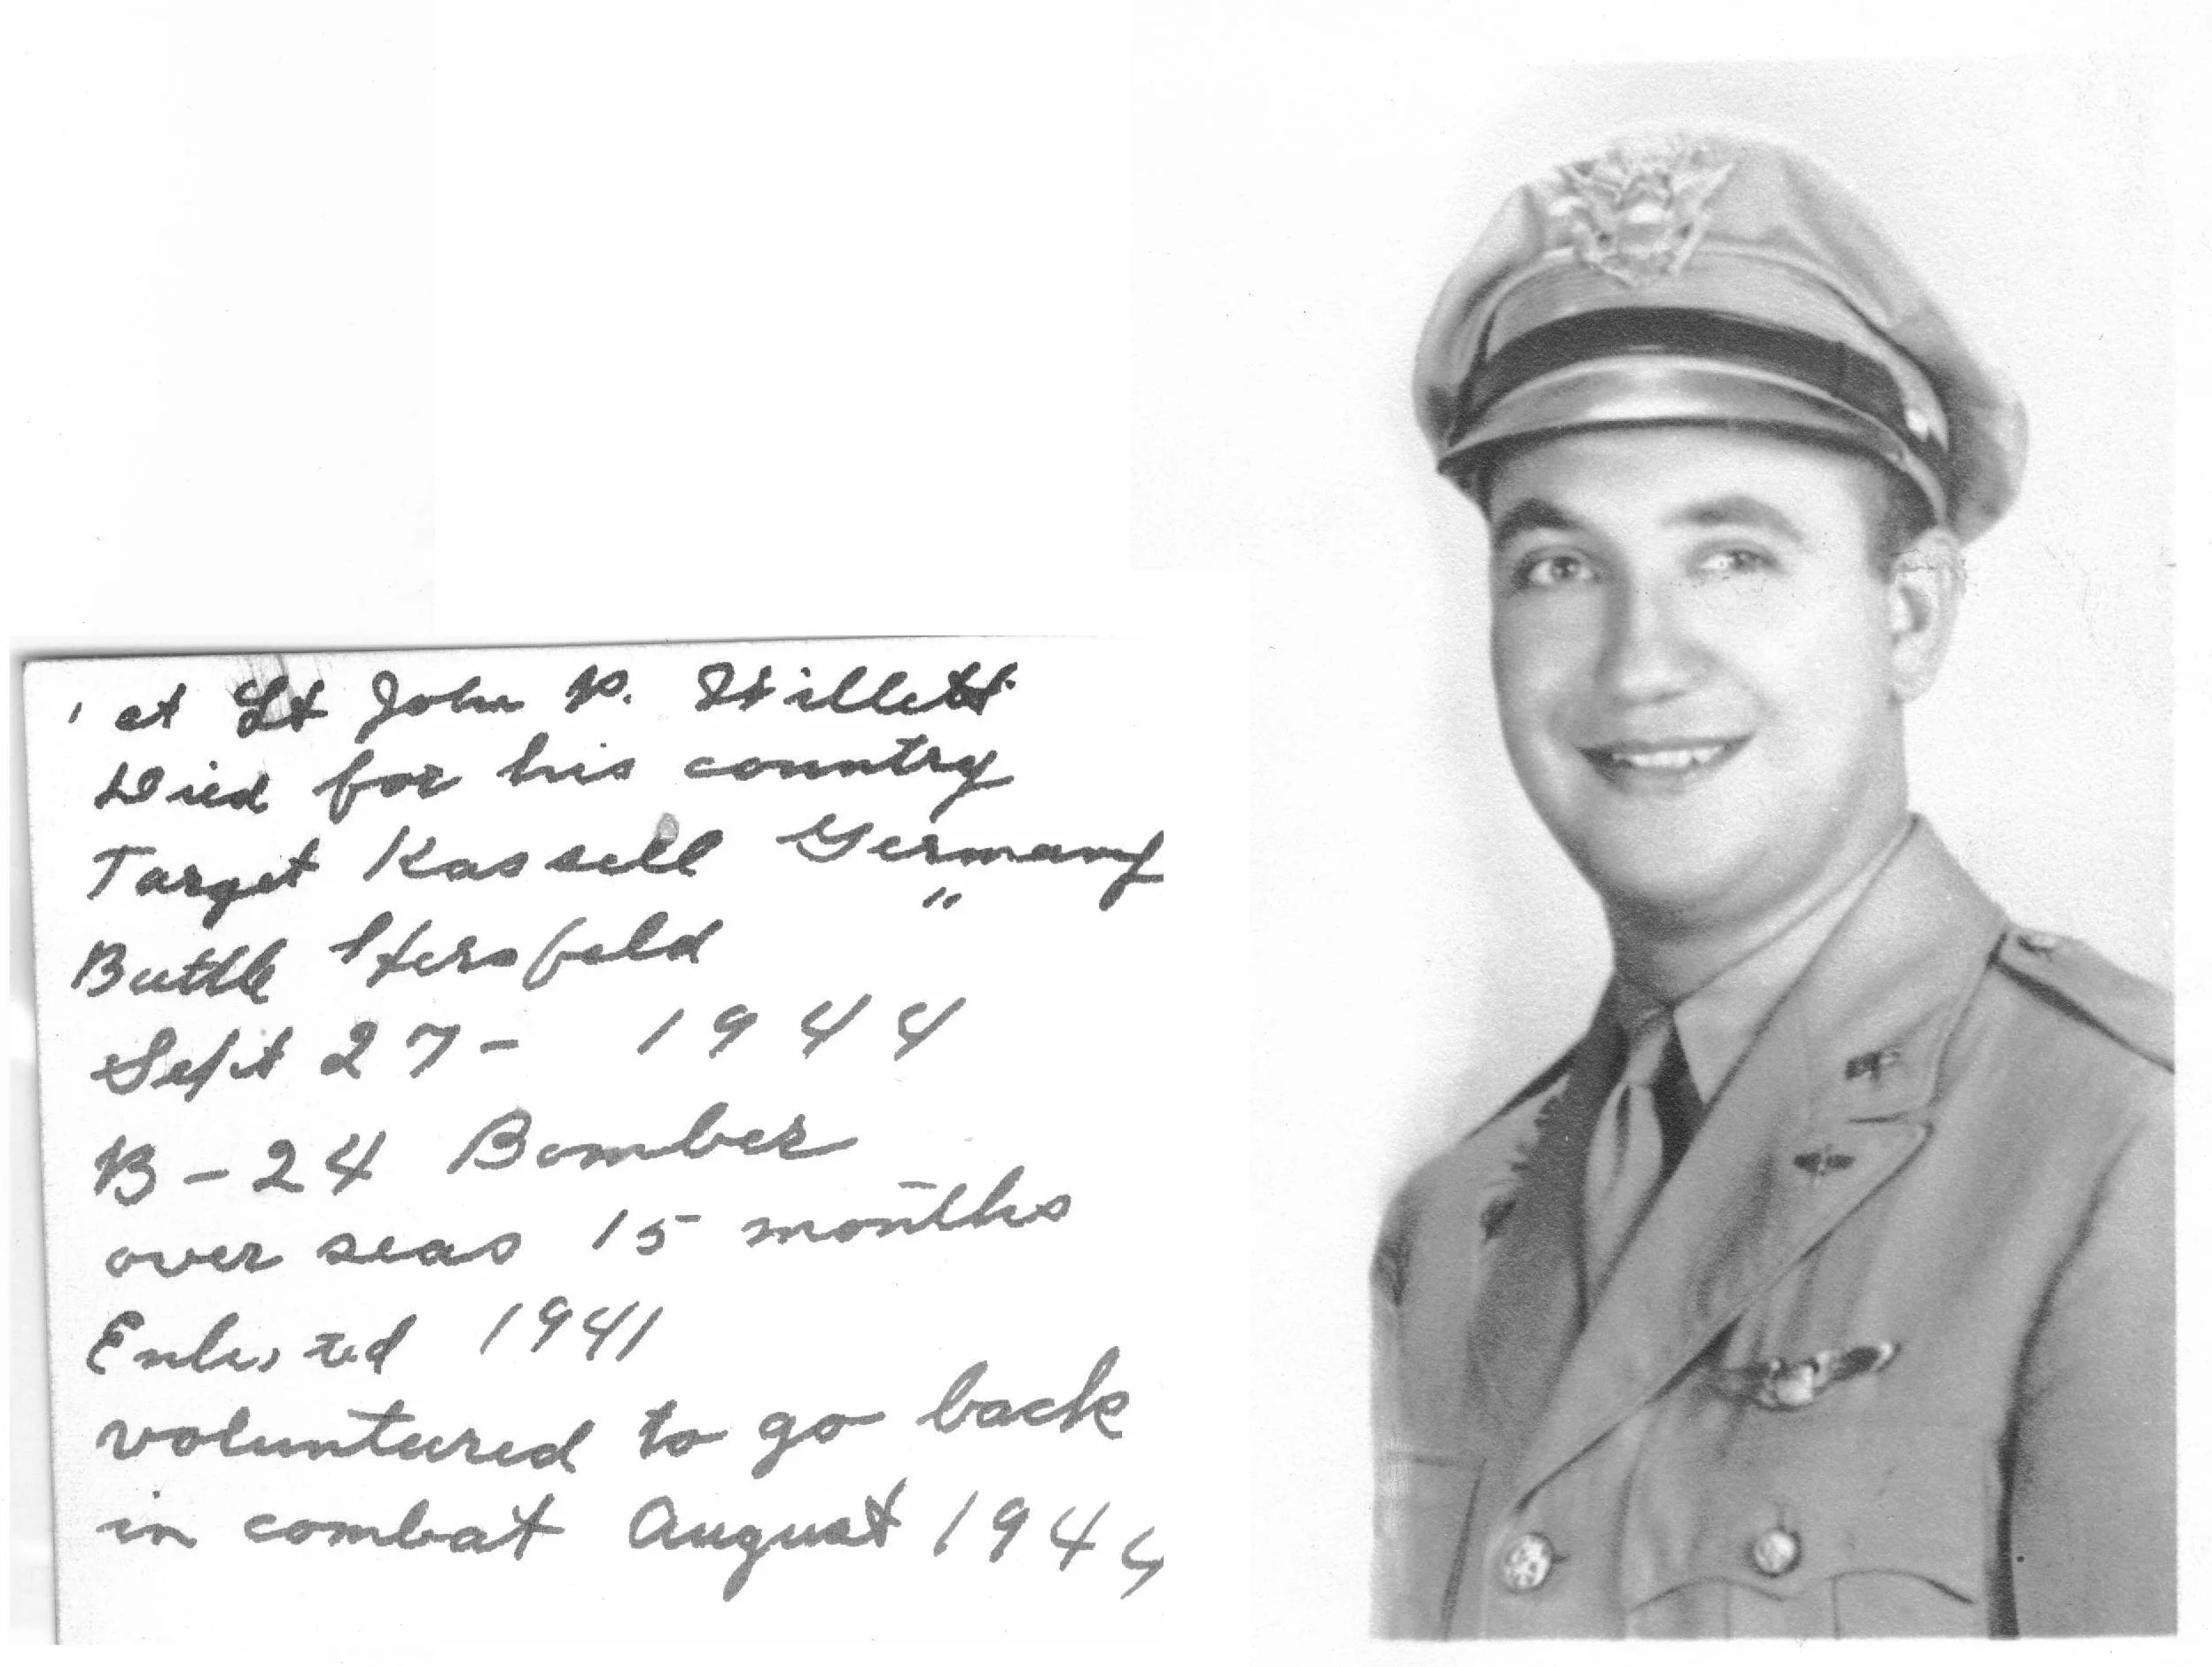 1 st Lt John P.
Died for his country
Target Kassell Germany
Battle Hersfeld "
Sept 27- 1944
B-24 Bomber
over seas 15 months
Enlisted 1941
volunteered to go back
in combat August 1944